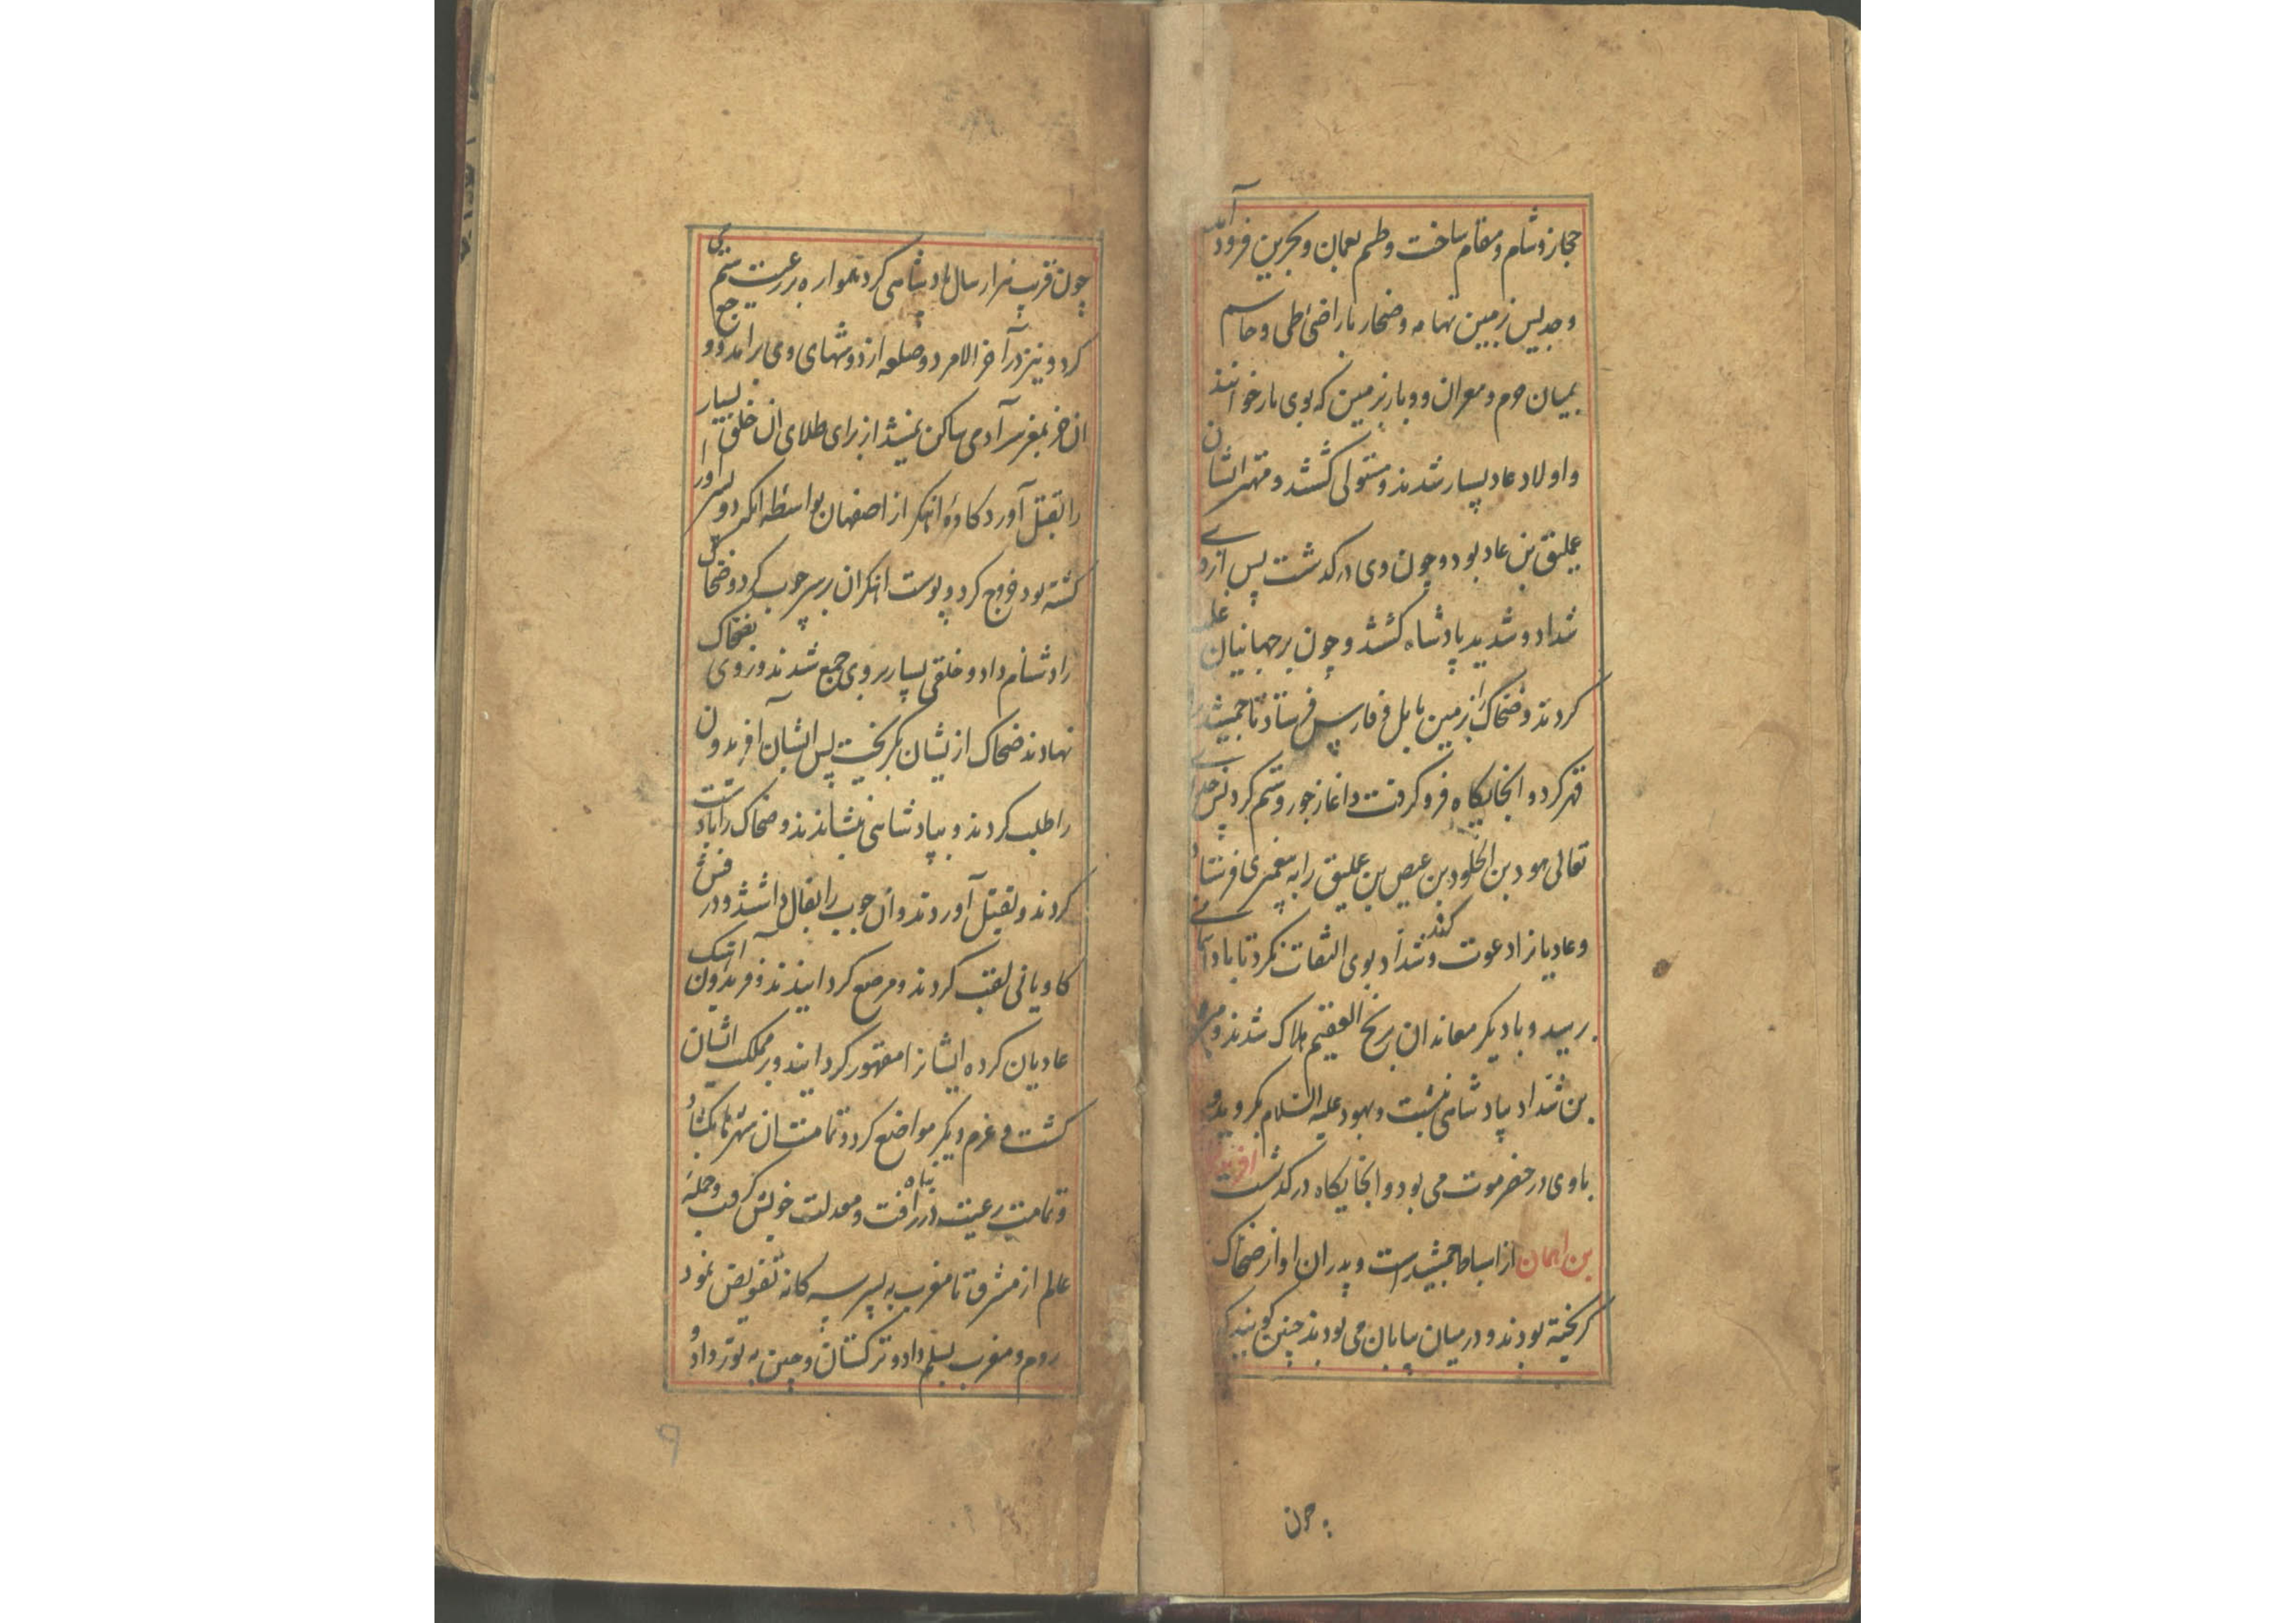 حجاز و شام و مقام ساخت و طسم بعمان و بحرین فرود آمد
و جدیس زمین تهامه و ضحار باراضی طی و جاسم
بمیان حرم و معران و وبار بزمین که بوی بار خوانند
و اولاد عاد بسیار شدند و مستولی گشتند و مهتر ایشان
عملیق بن عاد بود و چون وی درگذشت پس از وی
شداد و شدید پادشاه گشتند و چون بر جهانیان غلبه
کردند و ضحاک از زمین بابل و فارس فرستاد تا جمشید
قهر کرد و آنجایگاه فرو گرفت و آغاز جور و ستم کرد پس
تعالی هود بن الخلود بن عیص بن عملیق را به پیغمبری فرستاد
و عادیانرا دعوت کند و شداد بوی التفات نکرد تا باد
برسید و با دیگر معاندان بریح العقیم هلاک شدند و
بن شداد بپادشاهی نشست و بهود علیه السلام بگروید و
باوی در حضرموت می بود و آنجایگاه درگذشت افریدون
بن اثمان از اسباط جمشید است و پدران او از ضحاک
گریخته بودند و در میان بیابان می بودند چنین گویند که
چون
چون قرب هزار سال پادشاهی کرد همواره بر رعیت ستم می
کرد و نیز در آخر الامر دو ضلعه از دوشهای وی برآمد و وجع
آن جز بمغز سر آدمی ساکن نمیشد از برای طلای آن خلق بسیار
را بقتل آورد کاوۀ آهنگر از اصفهان بواسطه آنکه دو پسر او را
کشته بود خروج کرد و پوست آهنگران بر سر چوب کرد و ضحاک
را دشنام داد و خلقی بسیار بر وی جمع شدند و روی بضحاک
نهادند ضحاک ازیشان بگریخت پس ایشان آفریدون
را طلب کردند و بپادشاهی بنشاندند و ضحاک را بدست
کردند و بقتل آوردند و آن چوب را بفال داشتند و درفش
کاویانی لقب کردند و مرصع گردانیدند و فریدون آهنگ
عادیان کرده ایشانرا مقهور گردانید و بر مملکت ایشان
گشت و عزم دیگر مواضع کرد و تمامت آن شهرها بگشاد
و تمامت رعیت در پناه رافت و معدلت خویش گرفت و جمله
عالم از مشرق تا مغرب به پسر سه گانه تفویض نمود
روم و مغرب بسلم داد و ترکستان و چین به تور داد و
۹